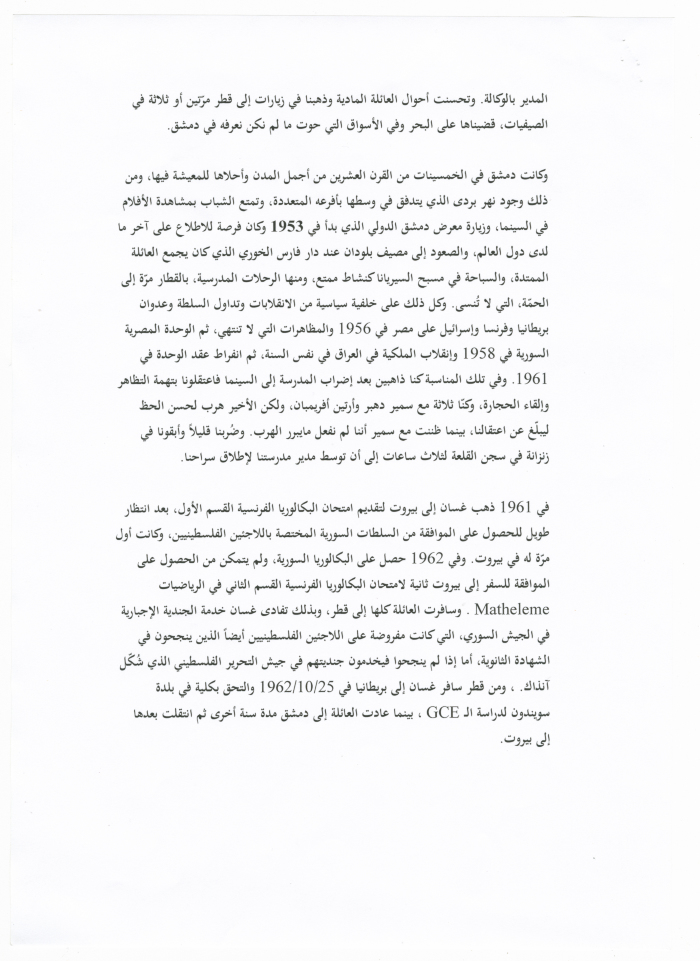 المدير بالوكالة. وتحسنت أحوال العائلة المادية وذهبنا في زيارات إلى قطر مرّتين أو ثلاثة في
الصيفيات، قضيناها على البحر وفي الأسواق التي حوت ما لم نكن نعرفه في دمشق.
وكانت دمشق في الخمسينات من القرن العشرين من أجمل المدن وأحلاها للمعيشة فيها، ومن
ذلك وجود نهر بردى الذي يتدفق في وسطها بأفرعه المتعددة، وتمتع الشباب بمشاهدة الأفلام
في السينما، وزيارة معرض دمشق الدولي الذي بدأ في 1953 وكان فرصة للاطلاع على آخر ما
لدى دول العالم، والصعود إلى مصيف بلودان عند دار فارس الخوري الذي كان يجمع العائلة
الممتدة، والسباحة في مسبح السيريانا كنشاط ممتع، ومنها الرحلات المدرسية، بالقطار مرّة إلى
الحمّة، التي لا تُنسى. وكل ذلك على خلفية سياسية من الانقلابات وتداول السلطة وعدوان
بريطانيا وفرنسا وإسرائيل على مصر في 1956 والمظاهرات التي لا تنتهي، ثم الوحدة المصرية
السورية في 1958 وإنقلاب الملكية في العراق في نفس السنة، ثم انفراط عقد الوحدة في
1961. وفي تلك المناسبة كنا ذاهبين بعد إضراب المدرسة إلى السينما فاعتقلونا بتهمة التظاهر
وإلقاء الحجارة، وكنّا ثلاثة مع سمير دهبر وأرتين أفريميان، ولكن الأخير هرب لحسن الحظ
ليبلّغ عن اعتقالنا، بينما ظننت مع سمير أننا لم نفعل مايبرر الهرب. وضُربنا قليلاً وأبقونا في
زنزانة في سجن القلعة لثلاث ساعات إلى أن توسط مدير مدرستنا لإطلاق سراحنا.
في 1961 ذهب غسان إلى بيروت لتقديم امتحان البكالوريا الفرنسية القسم الأول، بعد انتظار
طويل للحصول على الموافقة من السلطات السورية المختصة باللاجئين الفلسطينيين، وكانت أول
مرّة له في بيروت. وفي 1962 حصل على البكالوريا السورية، ولم يتمكن من الحصول على
الموافقة للسفر إلى بيروت ثانية لامتحان البكالوريا الفرنسية القسم الثاني في الرياضيات
Matheleme . وسافرت العائلة كلها إلى قطر، وبذلك تفادى غسان خدمة الجندية الإجبارية
في الجيش السوري، التي كانت مفروضة على اللاجئين الفلسطينيين أيضاً الذين ينجحون في
الشهادة الثانوية، أما إذا لم ينجحوا فيخدمون جنديتهم في جيش التحرير الفلسطيني الذي شُكّل
آنذاك. ، ومن قطر سافر غسان إلى بريطانيا في 1962/10/25 والتحق بكلية في بلدة
سويندون لدراسة الـ GCE ، بينما عادت العائلة إلى دمشق مدة سنة أخرى ثم انتقلت بعدها
إلى بيروت.